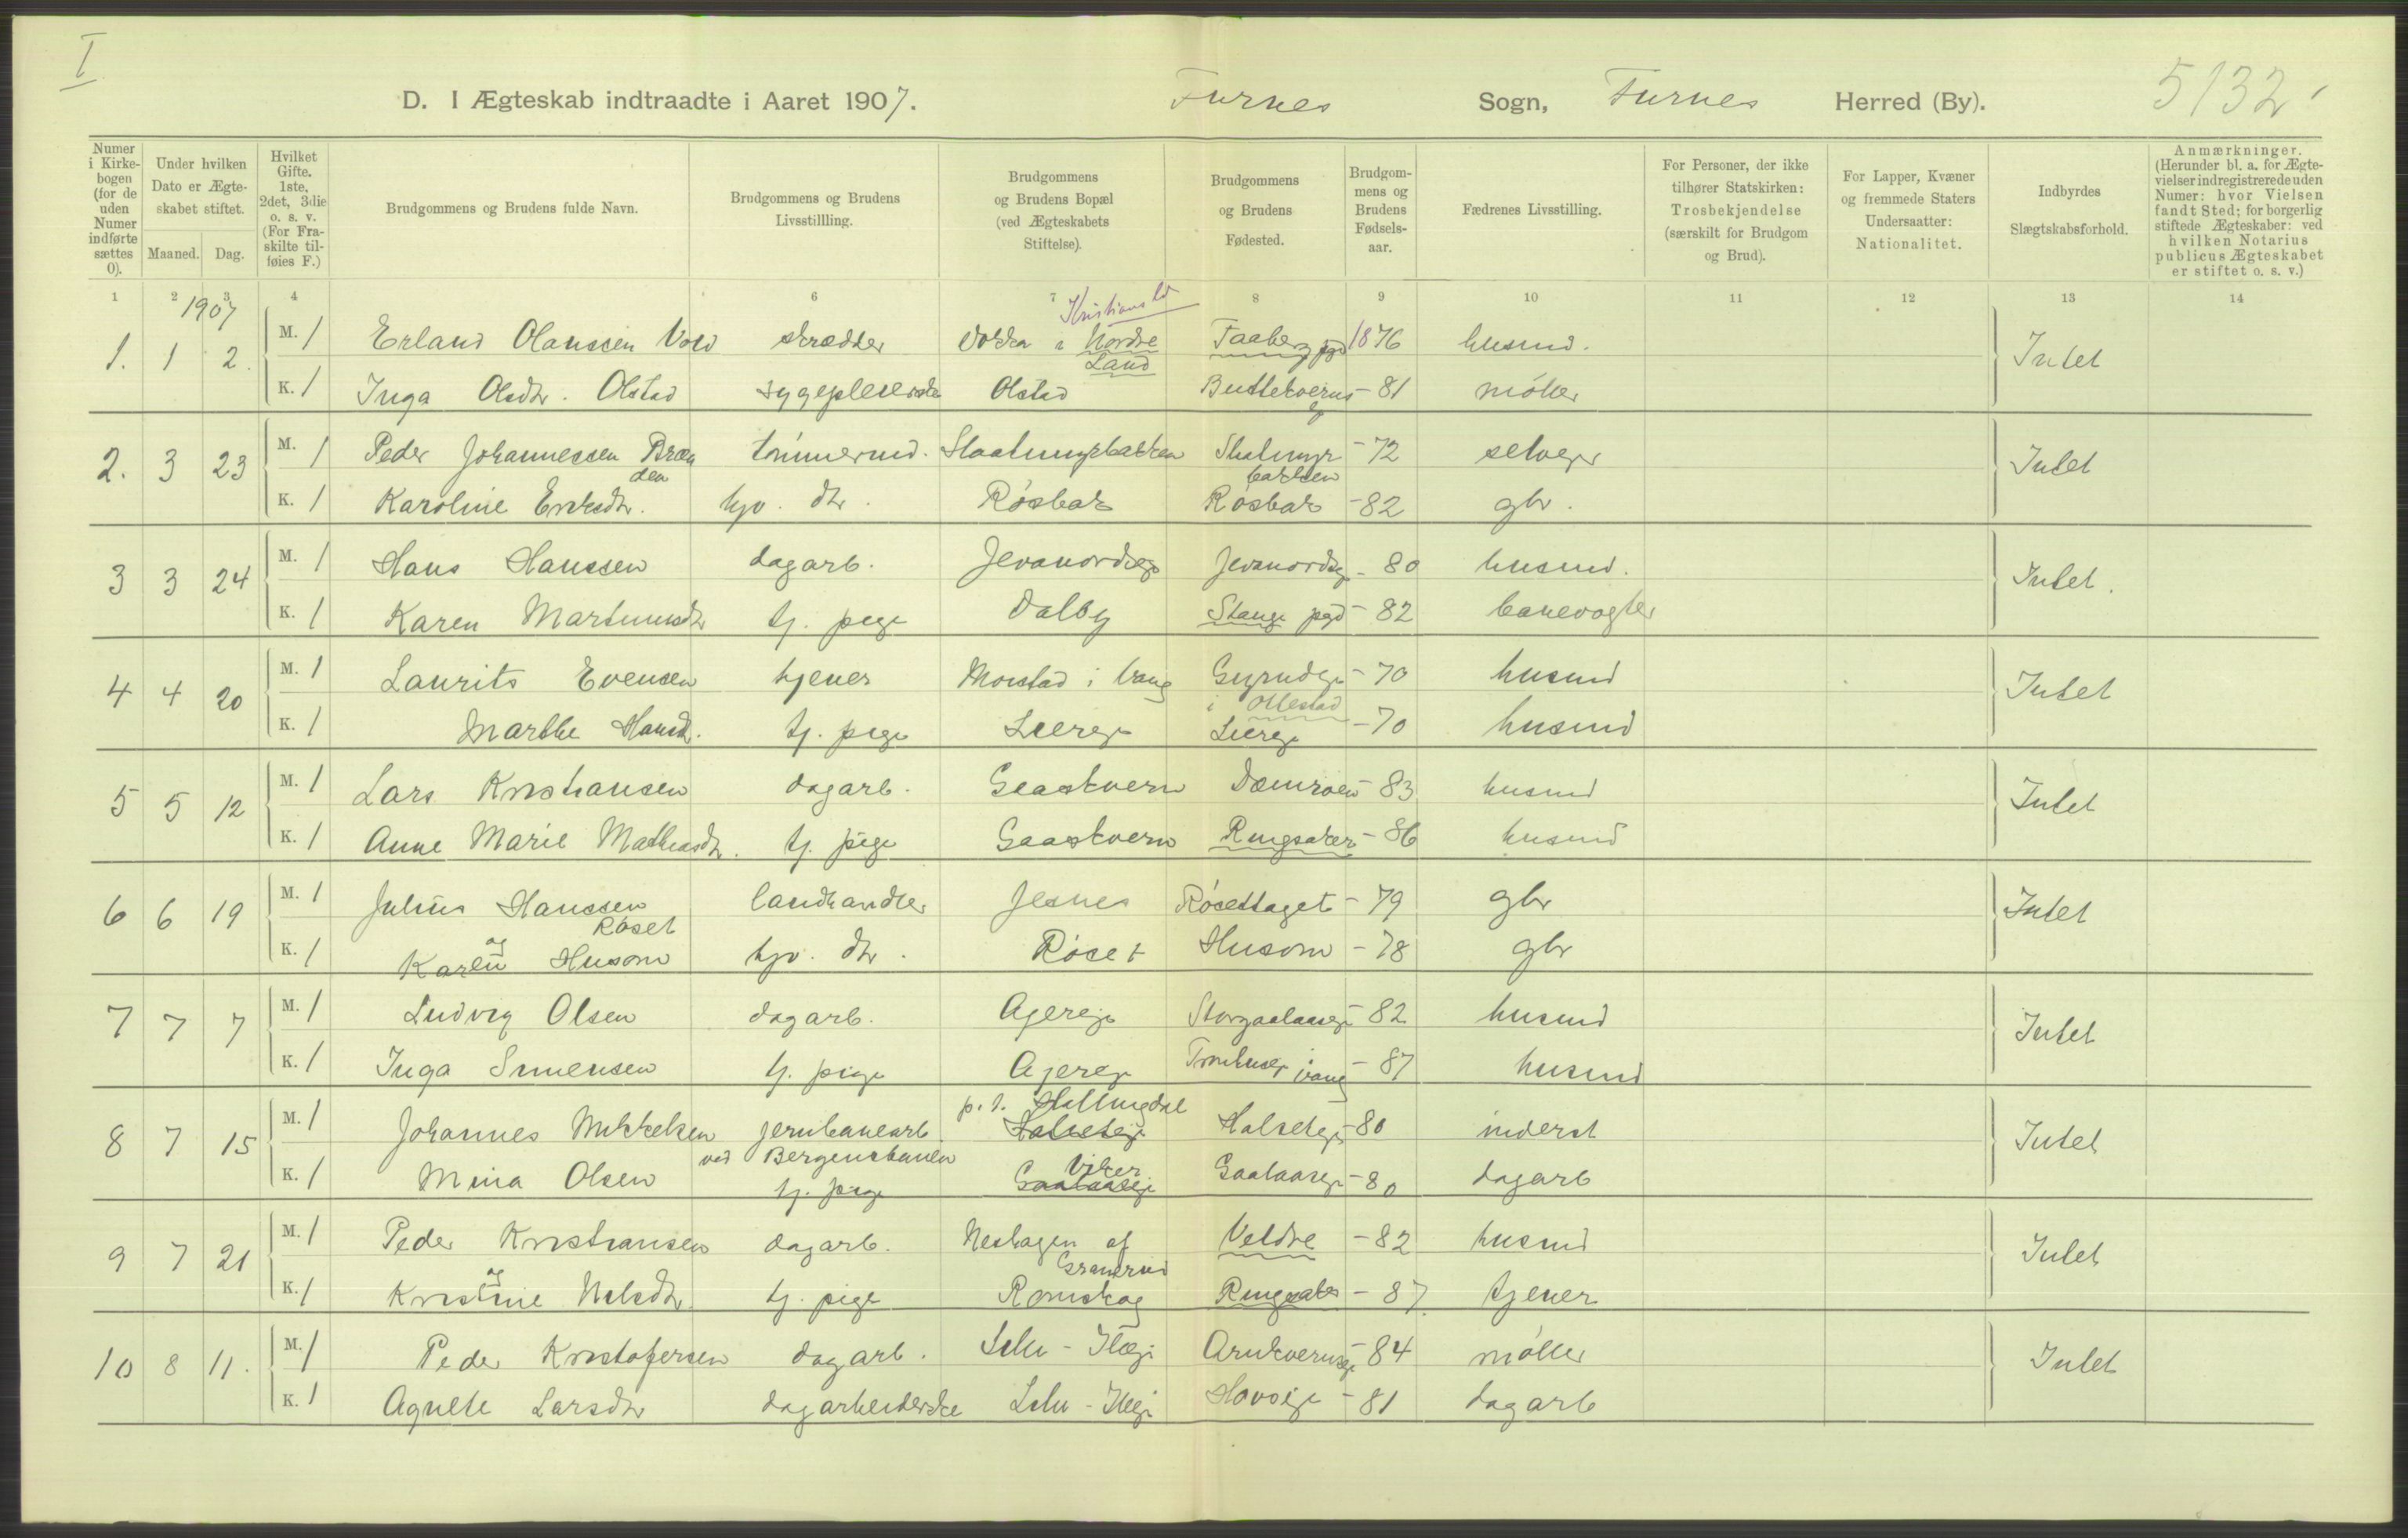 I
D. I Ægteskab indtraadte i Aaret 1907. Furnes Sogn, Furnes Herred (By). 5132
Numer i Kirkebogen (for de uden Numer indførte sættes 0).
Under hvilken Dato er Ægteskabet stiftet.
Maaned. Dag.
Hvilket Gifte. 1ste, 2det, 3die o. s. v. (For Fraskilte tilføies F.)
Brudgommens og Brudens fulde Navn.
Brudgommens og Brudens Livsstillling.
Brudgommens og Brudens Bopæl (ved Ægteskabets Stiftelse).
Brudgommens og Brudens Fødested.
Brudgommens og Brudens Fødselsaar.
Fædrenes Livsstilling.
For Personer, der ikke tilhører Statskirken: Trosbekjendelse (særskilt for Brudgom og Brud).
For Lapper, Kvæner og fremmede Staters Undersaatter: Nationalitet.
Indbyrdes Slægtskabsforhold.
Anmærkninger. (Herunder bl. a. for Ægtevielser indregistrerede uden Numer: hvor Vielsen fandt Sted; for borgerlig stiftede Ægteskaber: ved hvilken Notarius publicus Ægteskabet er stiftet o. s. v.)
1 2 3 4 6 7 8 9 10 11 12 13 14
1907
Kristians
1. 1 2. M. 1 Erland Olaussen Vold skrædder Dokka i Nordre Land Faaberg pgd 1876 husmd. Intet
K. 1 Inga Olsdtr. Olstad sygepleierske Olstad - 81 møller
2. 3 23 M. 1 Peder Johannessen Brænden tømmermd. - 72 selveier Intet
K. 1 Karoline Eriksdtr. hjv. dtr. Røsbak Røsbak - 82 gbr.
3 3 24 M. 1 Hans Hanssen dagarb. Jevanordeie Jevanordeie - 80 husmd. Intet.
K. 1 Karen Martinusdtr tj. pige Dalby Stange pgd - 82 banevogter
4 4 20 M. 1 Laurits Evensen tjener Morstad i Vang i Ottestad - 70 husmd Intet
K. 1 Marthe Hansd. tj. pige Liereie Liereie - 70 husmd
5 5 12 M. 1 Lars Kristiansen dagarb. Gaaskvern - 83 husmd Intet
K. 1 Anne Marie Mathiasdtr. tj. pige Gaaskvern Ringsaker - 86 husmd
6 6 19 M. 1 Julius Hanssen Røset landhandler Jesnes - 79 gbr Intet
K. 1 og Karen Husom hjv. dtr. Røset Husom - 78 gbr
7 7 7 M. 1 Ludvig Olsen dagarb. Ajereie - 82 husmd Intet
K. 1 Inga Simensen tj. pige Ajereie i Vang - 87 husmd
8 7 15 M. 1 Johannes Mikkelsen jernbanearb. ved Bergensbanen p. t. Hallingdal Halseteie Halseteie - 80 inderst Intet
K. 1 Mina Olsen tj. pige Viker Gaalaaseie Gaalaaseie - 80 dagarb
9 7 21 M. 1 Peder Kristiansen dagarb. Neshagen af Granerud Veldre - 82 husmd Intet
K. 1 og Kristine Nilsdtr. tj. pige Romskog Ringsaker - 87. tjener
10 8 11. M. 1 Peder Kristofersen dagarb. - 84 møller Intet
K. 1 Agnete Larsdtr dagarbeiderske Hovseie - 81 dagarb